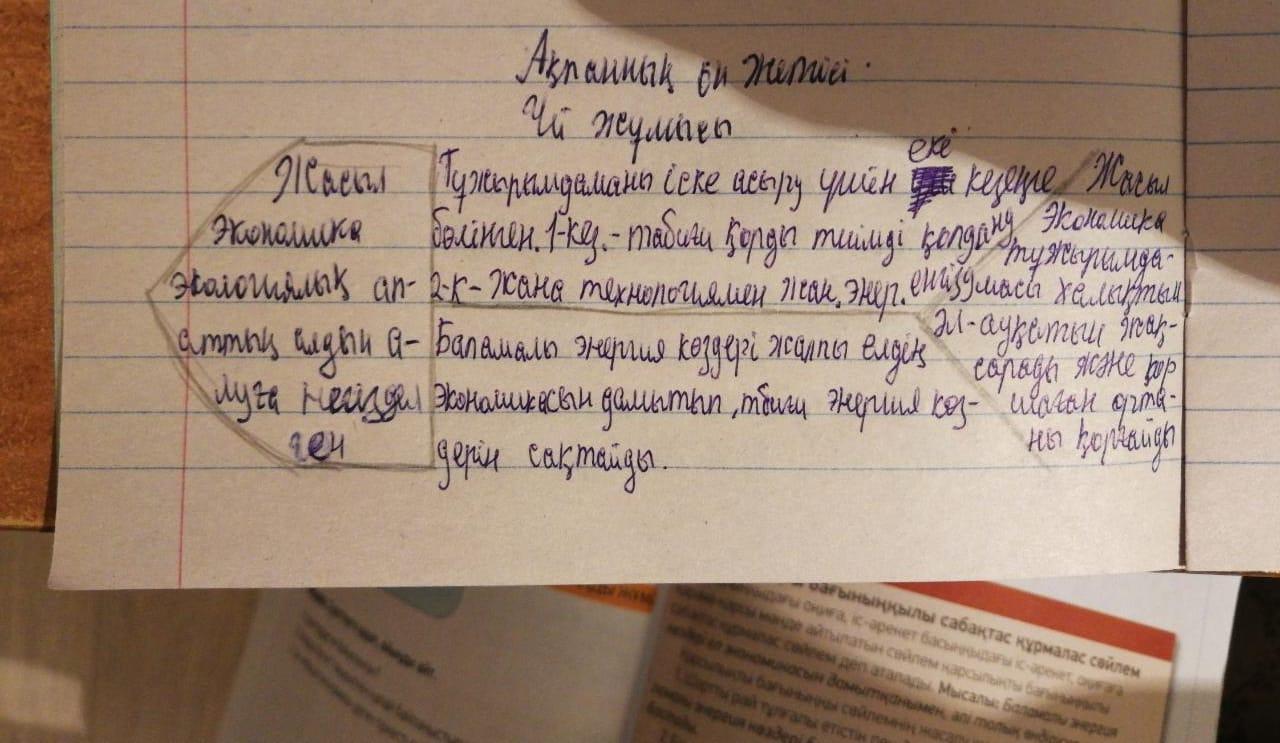 Ақпанның он жетісі.
Үй жұмысы
Жасыл
Экономика
экологиялық ап-
аттың алдын а-
луға негіздел
ген
Тұжырымдаманы іске асыру үшін екі кезеңге
бөлінген. 1-кез.-табиғи қорды тиімді қолдану
2-к-жана технологиямен жаң. энер. енгізу
Баламалы энергия көздері жалпы елдің
экономикасын дамытып, тбиғи энергия көз-
дерін сақтайды.
Жасыл
Экономика
тұжырымда-
масы халықтың
әл-ауқатын жақ-
сарады және қор
шаған орта-
ны қорғайды
бағыныңқылы сабақтас құрмалас сөйлем
оқиға, іс-әрекет басыңқыдағы іс-әрекет, оқиғаға
қарсы мәнде айтылатын сөйлем қарсылықты бағыныңқылы
сабақтас құрмалас сөйлем деп аталады. Мысалы: Баламалы энергия
экономикасын дамытқанымен, әлі толық
Қарсылықты бағыныңқы сөйлемнің жасалу
Шартты рай тұлғалы етістік
энергия көздері